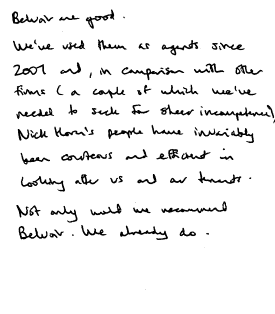 Belvoir are good.
We've used them as agents since
2007 and, in comparison with other
firms (a couple of which we've
needed to sack for sheer incompetence),
Nick Horn's people have invariably
been courteous and efficient in
looking after us and our tenants.
Not only would we recommend
Belvoir. We already do.